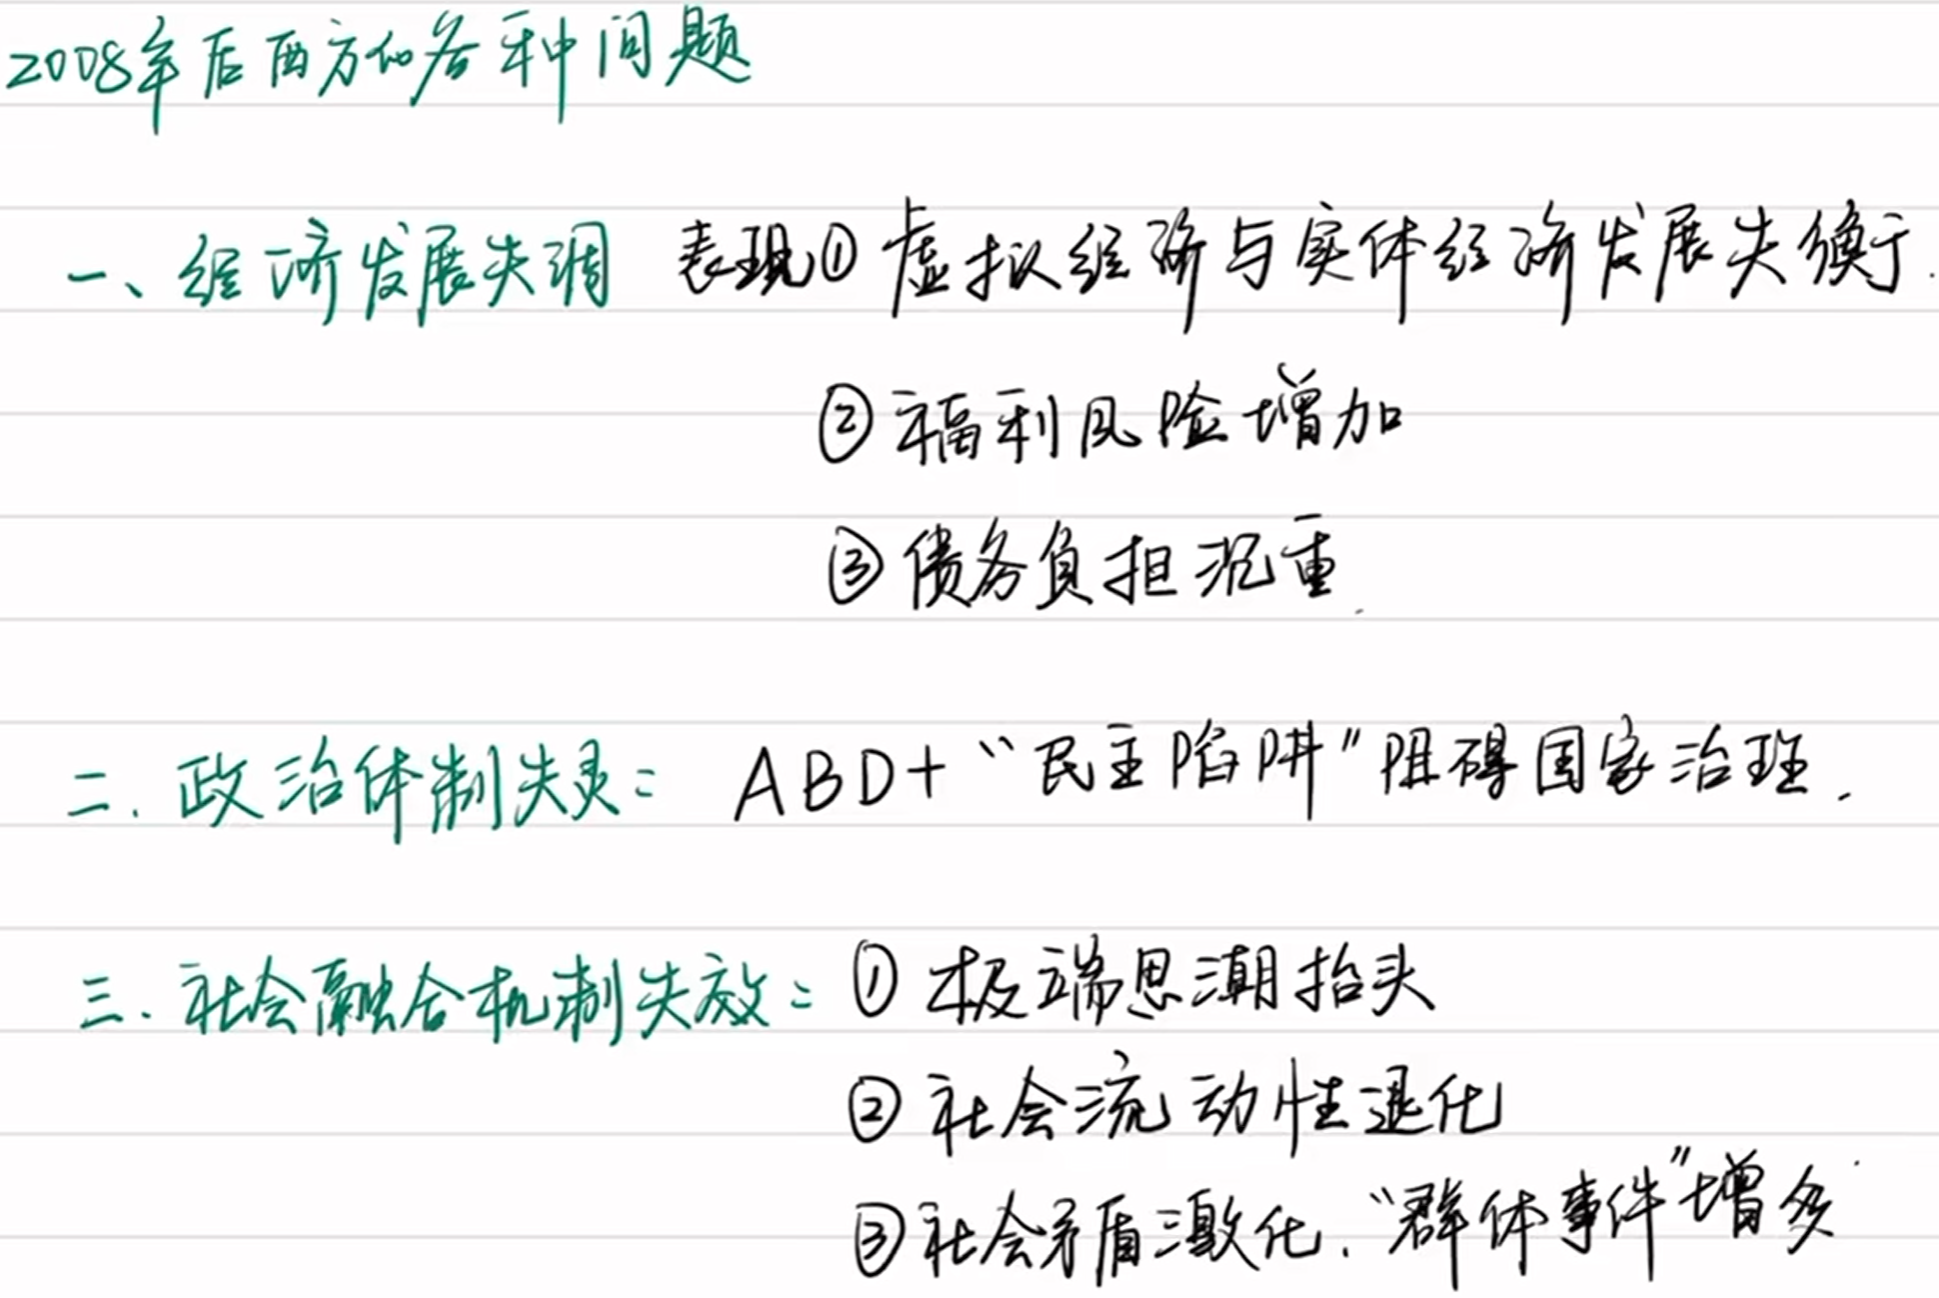 2008年后西方的各种问题
一、经济发展失调 表现① 虚拟经济与实体经济发展失衡.
② 福利风险增加
③ 债务负担沉重.
二. 政治体制失灵: ABD+“民主陷阱”阻碍国家治理.
三. 社会融合机制失效: ① 极端思潮抬头
② 社会流动性退化
③ 社会矛盾激化.“群体事件”增多